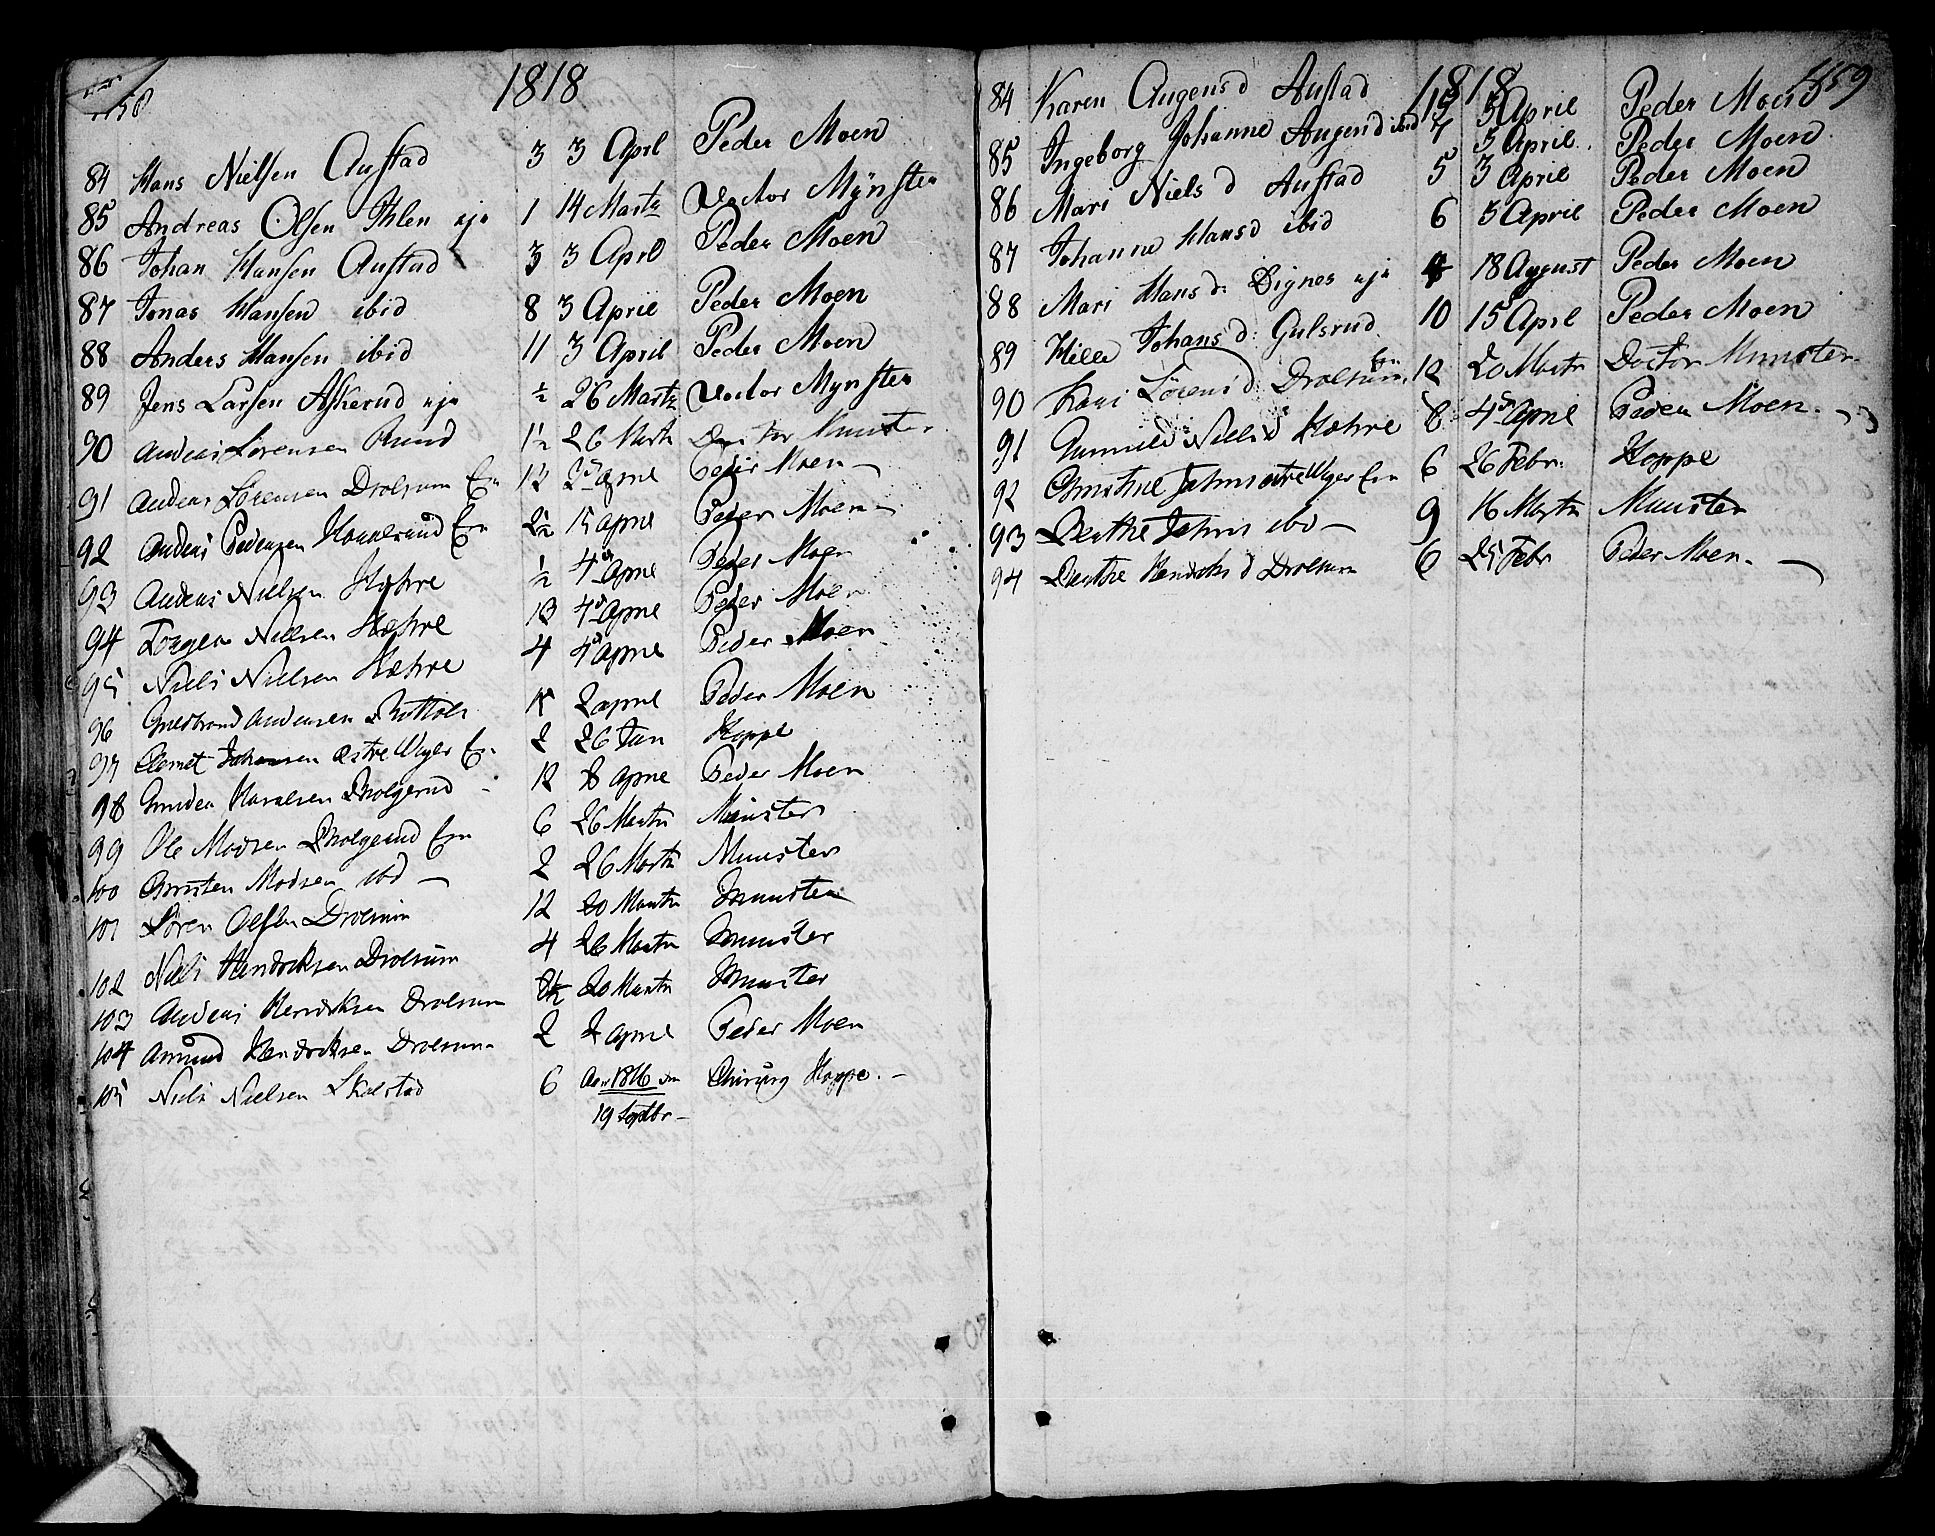 158
1818
84 Hans Nielsen Austad 3 3 April Peder Moen
85 Andreas Olsen Ihlen eje 1 14 Martz Doctor Mÿnster
86 Johan Hansen Austad 3 3 April Peder Moen
87 Jonas Hansen ibid 8 3 April Peder Moen
88 Anders Hansen ibid 11 3 April Peder Moen
89 Jens Larsen Askerud eje ½ 26 Martz Doctor Mÿnster
90 Anders Lörensen Ruud 1½ 26 Martz Doctor Munster
91 Anders Lörensen Drolsum Eie 1½ April Peder Moen
92 Anders Pedersen Eie 2½ 15 April Peder Moen
93 Anders Nielsen Hæhre ½ 4de April Peder Moen
94 Torgen Nielsen Hæhre 13 4de April Peder Moen
95 Niels Nielsen Hæhre 4 4de April Peder Moen
96 Andersen 2 April Peder Moen
97 Clemet Johannsen østre Wger Eie 2 26 Jan Hoppe
98 Haralsen Skolgerud 12 8 April Peder Moen
99 Ole Madsen Skolgerud Eie 6 26 Martz Münster
100 Christen Madsen ibd 2 26 Martz Munster
101 Sören Olsen Drolsum 12 20 Martz Munster
102 Niels Hendriksen Drolsum 4 26 Martz Munster
103 Anders Henriksen Drolsum 20 Martz Munster
104 Amund Hendriksen Drolsum 2 2 April Peder Moen
105 Nils Nielsen Skalstad 6 Aar 1816 den Chirurg Hoppe.
19 Septbr
159
1818
84 Karen Augensd Austad 13 5 April Peder Moen
85 Ingeborg Johanne Augensd ibid 7 5 April Peder Moen
86 Mari Nielsd Austad 5 3 April Peder Moen
87 Johanne Hansd ibid 6 5 April Peder Moen
88 Mari Hansd: Dignes eje 4 18 August Peder Moen
89 Helle Johansd: Gulsrud 10 15 April Peder Moen
90 Kari Lörensd: Drolsum Eie 12 20 Martz Doctor Munster
91 Gunnild Nielsd Hæhre 8 4de April Peder Moen
92 Christine Johnsd østre Wger Eie 6 26 Febr: Hoppe
93 Berthe Johnsd ibd 9 16 Martz Munster
94 Berthe Hendriksd Drolsum 6 25 Febr Peder Moen.